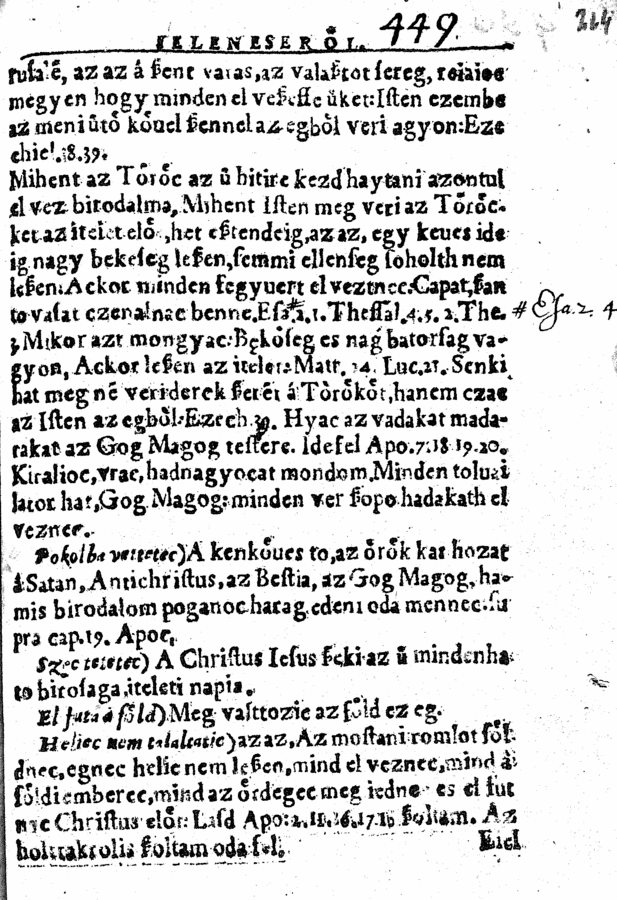 IELENESERŐL. 449. 214
rusalē, az az á ßent varas, az valaßtot sereg, reiaioc
megyen hogy minden el veßesse üket: Isten ezembe
az meniütő kőuel ßennel az egből veri agyon: Eze
chiel. 38.39.
Mihent az Tőrőc az ű hitire kezd haytani azontul
el vez birodalma, Mihent Isten meg veri az Tőrőc-
ket az itelet elő, het eßtendeig, az az, egy keues ide
ig nagy bekeseg leßen, semmi ellenseg soholth nem
leßen: Ackor minden fegyuert el veztnec: Capat, ßan
to vasat czenalnac benne, Esa 2.1. Thessal. 4.5. 2. The. # Esa. 2. 4
3 Mikor azt mongyac: Bękőseg es nag batorsag va-
gyon, Ackor leßen az itelet: Matt. 24. Luc. 21. Senki
hat meg nē veri derek ßerēt á Tőrőkőt, hanem czac
az Isten az egből: Ezech. 39. Hyac az vadakat mada-
rakat az Gog Magog testere. Idefel Apo. 7.18 19.20.
Kiralioc, vrac, hadnagyocat mondom, Minden toluai
lator hat, Gog Magog: minden ver ßopo hadakath el
veznec.
Pokolba vettetec) A kenkőues to, az őrők kar hozat
á Satan, Antichristus, az Bestia, az Gog Magog, ha-
mis birodalom poganoc harag edeni oda mennec: su
pra cap. 19. Apoc.
Szec tetetec) A Christus Iesus ßeki az ű mindenha-
to birosaga, iteleti napia.
El futa á főld) Meg vasttozic az főld ez eg.
Heliec nem talaltatic) az az, Az mostani romlot főld
dnec, egnec helie nem leßen, mind el veznec, mind á
főldi emberec, mind az ördegec meg iedne es el fut
nac Christus előt: Lasd Apo: 2. 11. 16. 17. 18 ßoltam. Az
holt ßoltam oda fel.
Eiel